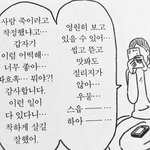 사람 죽이려고
작정했냐고...
갑자기
이럼 어떡해...
너무 좋아...
뭐야?!
감사합니다.
이런 일이
다 있다니...
착하게 살길
잘했어.
영원히 보고
있을 수 있어...
씹고 뜯고
맛봐도
질리지가
않아...
우물...
스읍
하아